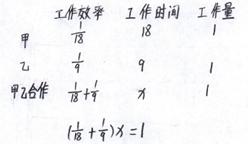 工作效率 工作时间 工作量
甲 1/18 18 1
乙 1/9 9 1
甲乙合作 1/18+1/9 x 1
(1/18+1/9)x=1